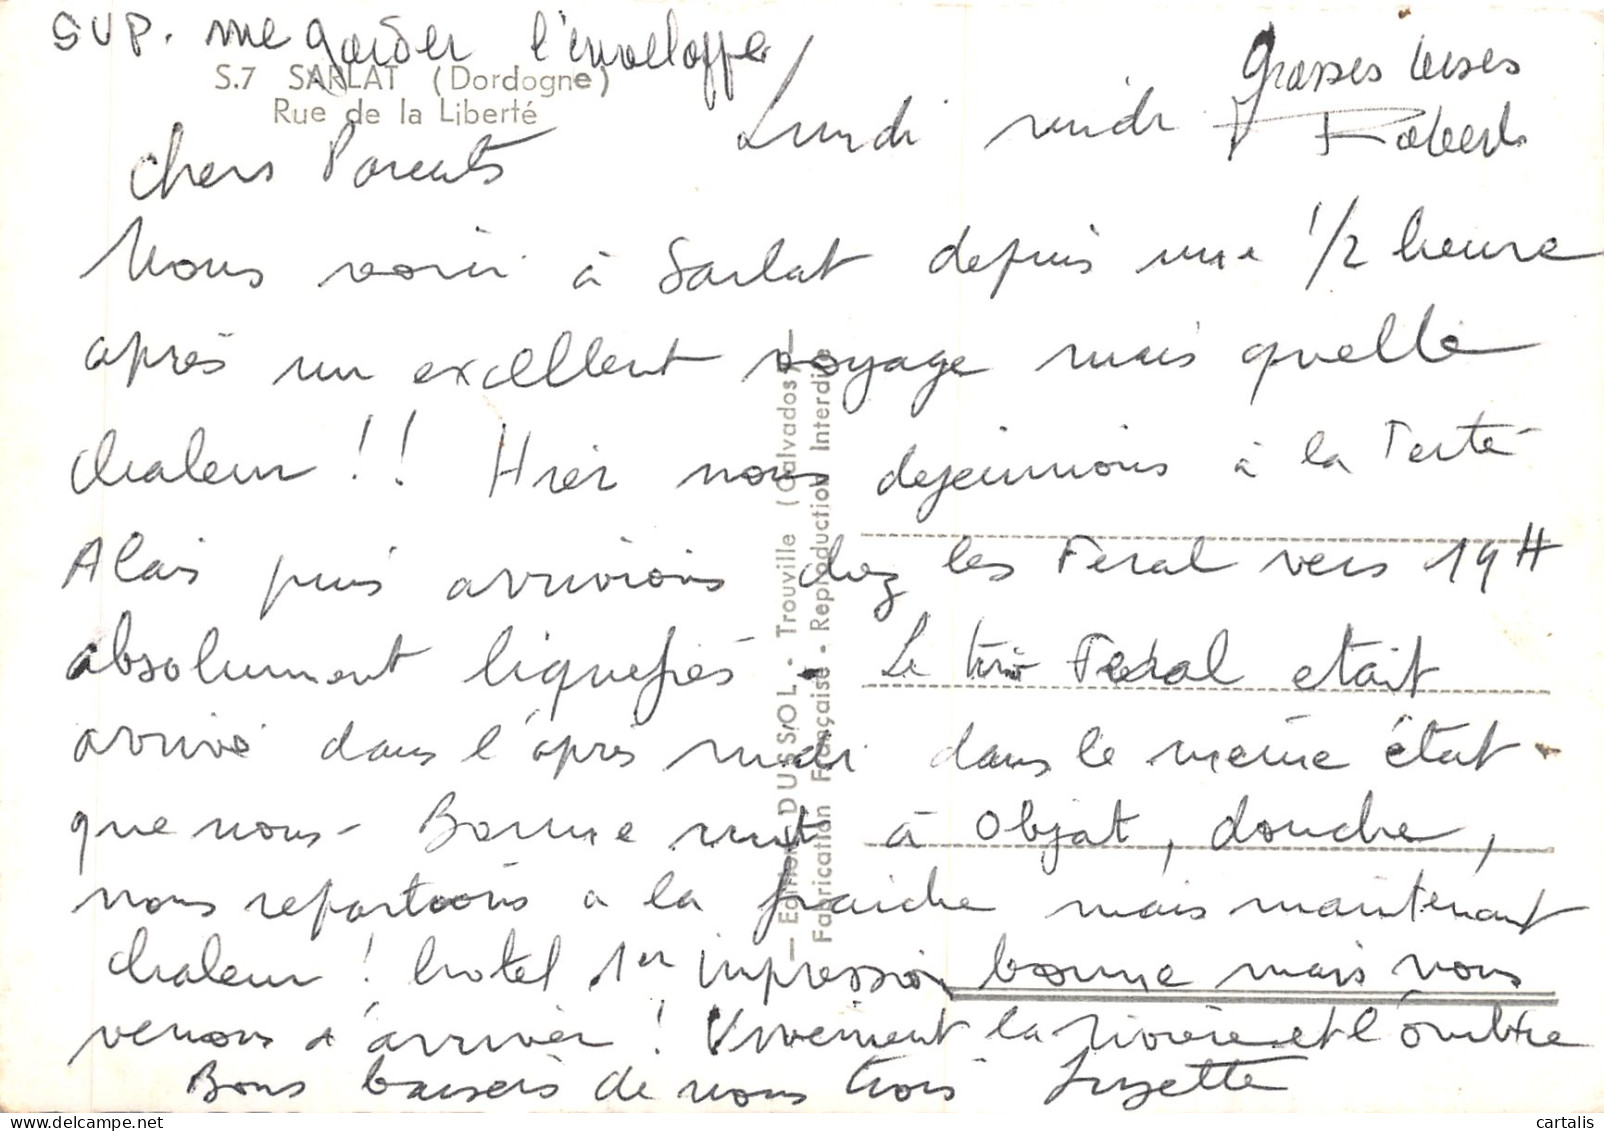 SVP. me garder l'enveloppe
S.7 SARLAT (Dordogne)
Rue de la Liberté
grosses bises
Lundi midi
Chers Parents
Nous voici à Sarlat depuis une 1/2 heure
après un excellent voyage mais quelle
chaleur !! Hier nous dejeunions à la Ferté
Alais puis arrivions chez les Feral vers 19H
absolument liquefiés. Le trio Feral etait
arrivé dans l'après midi dans le même état
que nous - Bonne nuit à Objat, douche,
nous repartons a la fraiche mais maintenant
chaleur ! hotel 1er impression bonne mais nous
venons d'arriver ! Vivement la rivière et l'ombre
Bons baisers de nous trois Suzette
— Editions DUSSOL - Trouville (Calvados) —
Fabrication Française - Reproduction Interdite
cartalis
delcampe.net